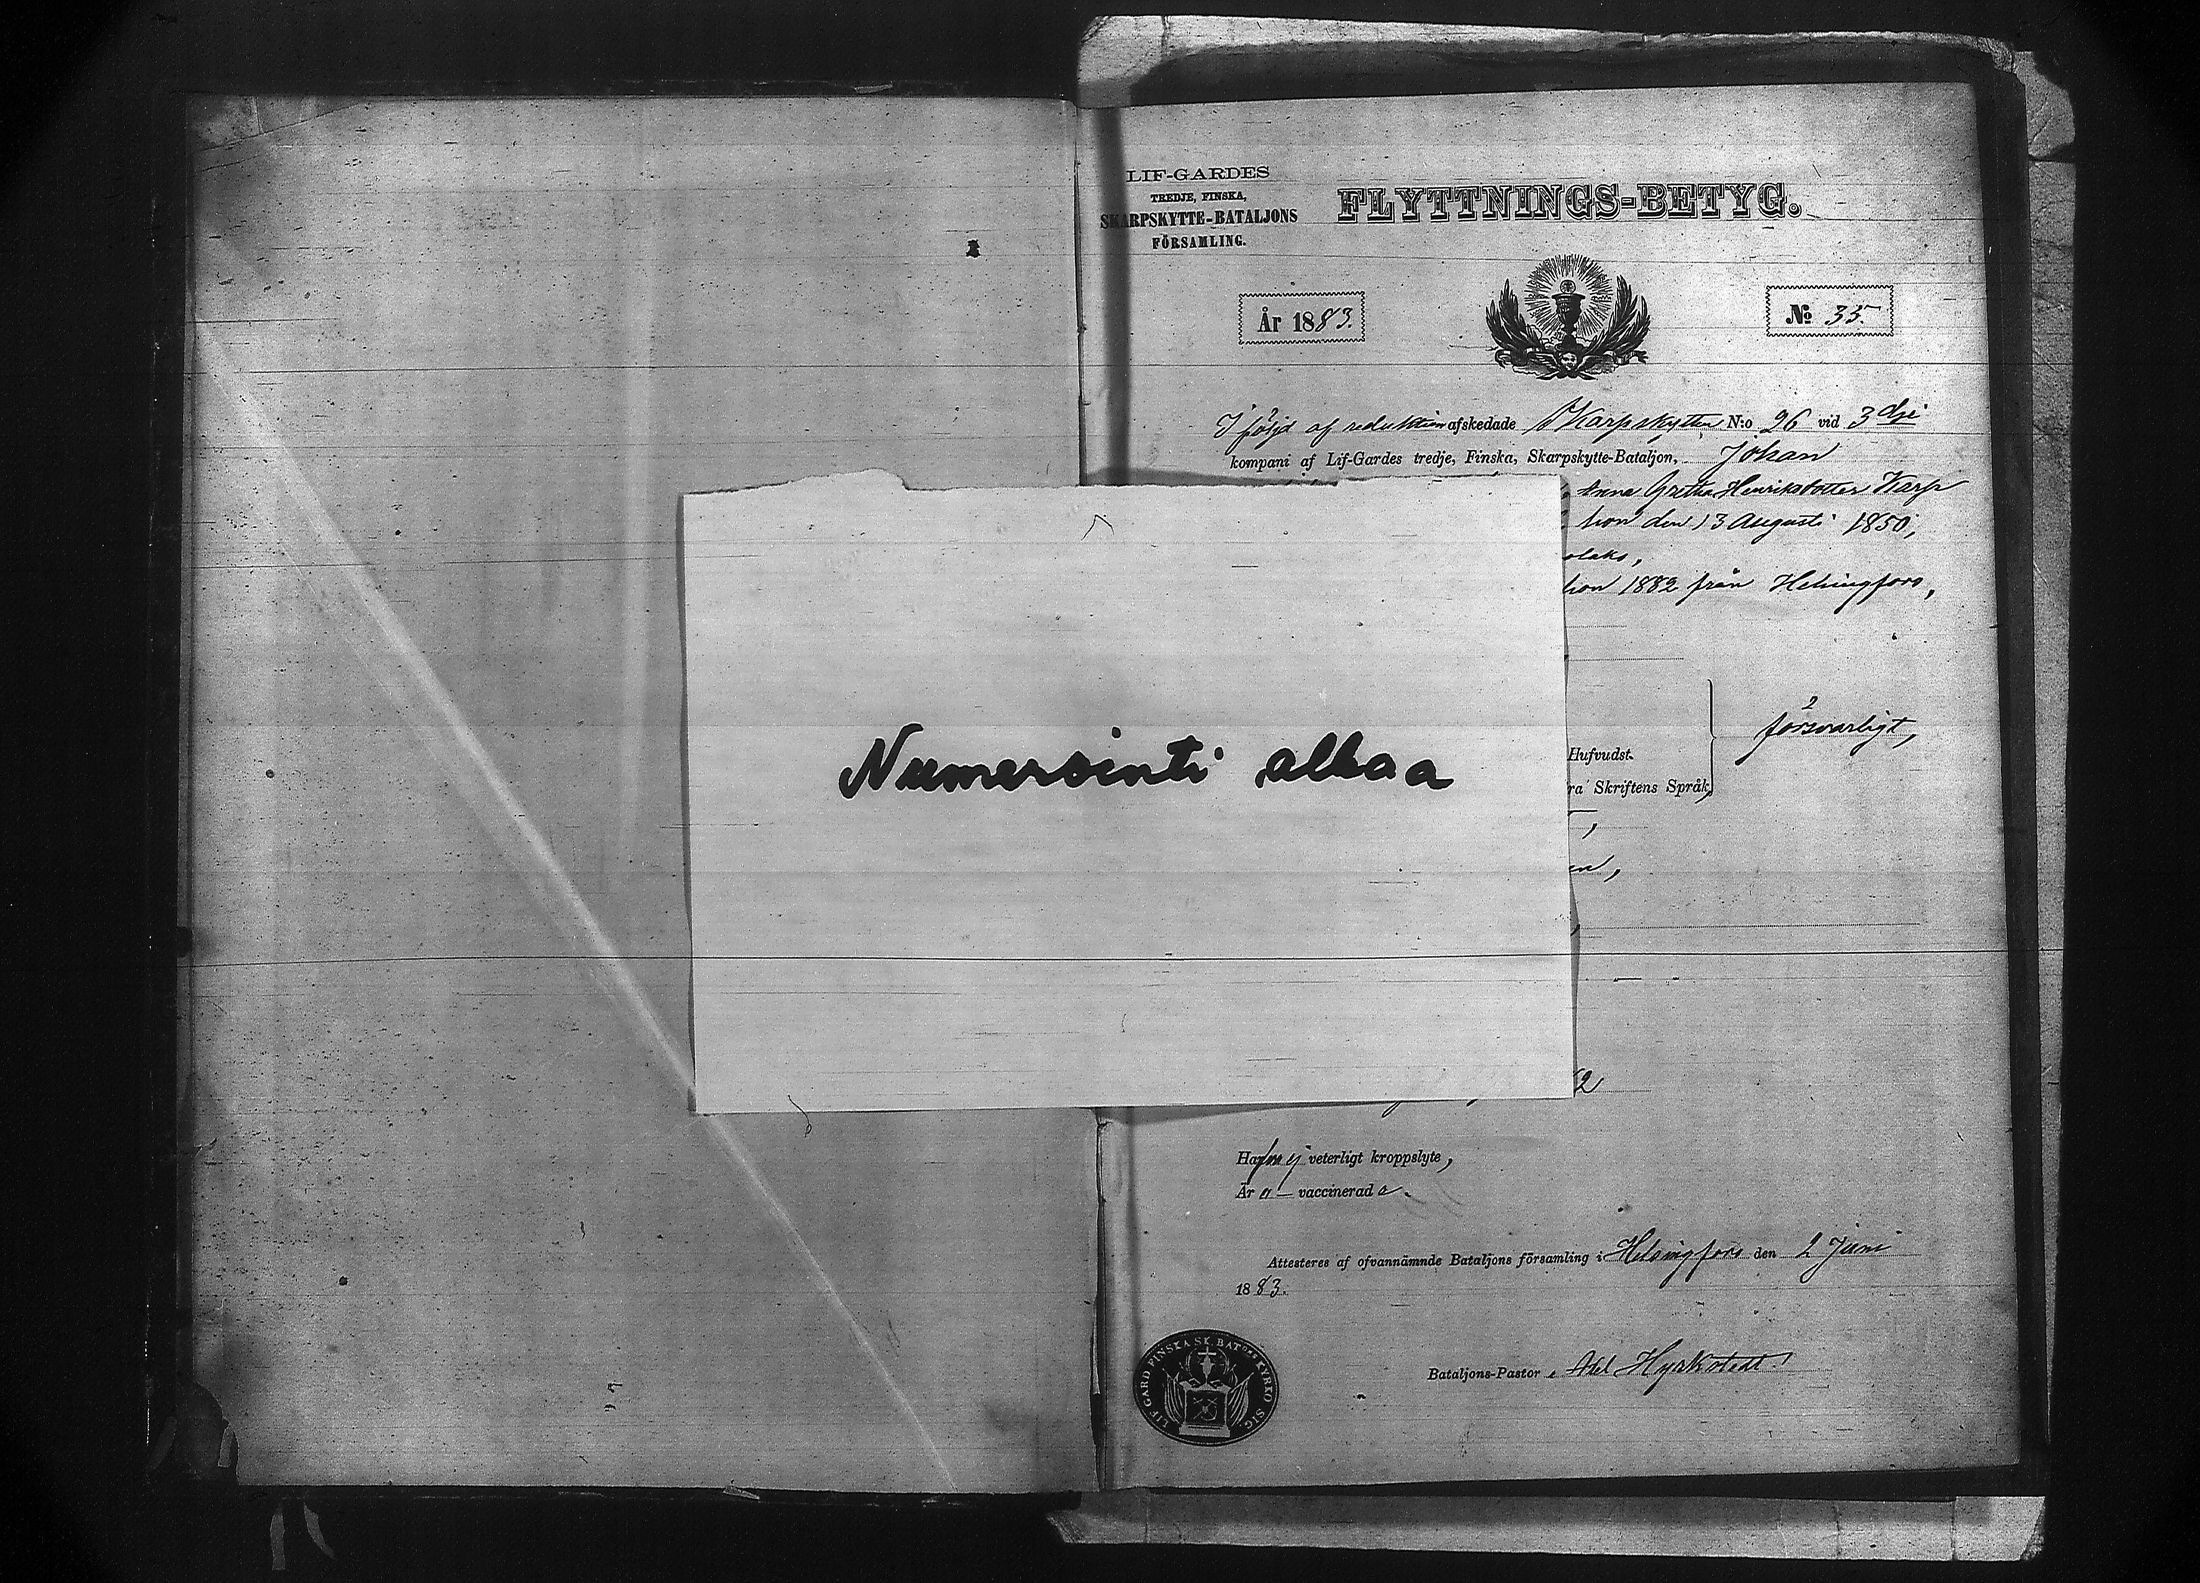 LIF-GARDES
TREDJE, FINSKA,
SKARPSKYTTE-BATALJONS
FÖRSAMLING.
FLYTTNINGS-BETYG.
År 1883.
No 35.
I följd af reduktion afskedade Skarpskytten N:o 26 vid 3dje
kompani af Lif-Gardes tredje, Finska, Skarpskytte-Bataljon, Johan
Anna Gretha Henriksdotter Karp
hon den 13 Augusti 1850,
olaks,
hon 1882 från Helsingfors,
försvarligt,
Hufvudst.
ra Skriftens Språk,
Numerointi alkaa
2
Hafva ej veterligt kroppslyte,
Är o vaccinerad e.
Attesteres af ofvannämnde Bataljons församling i Helsingfors den 2 Juni
1883.
LIF GARD FINSKA SK. BAT:NS KYRKO SIG.
Bataljons-Pastor, Axel Hyrkstedt.